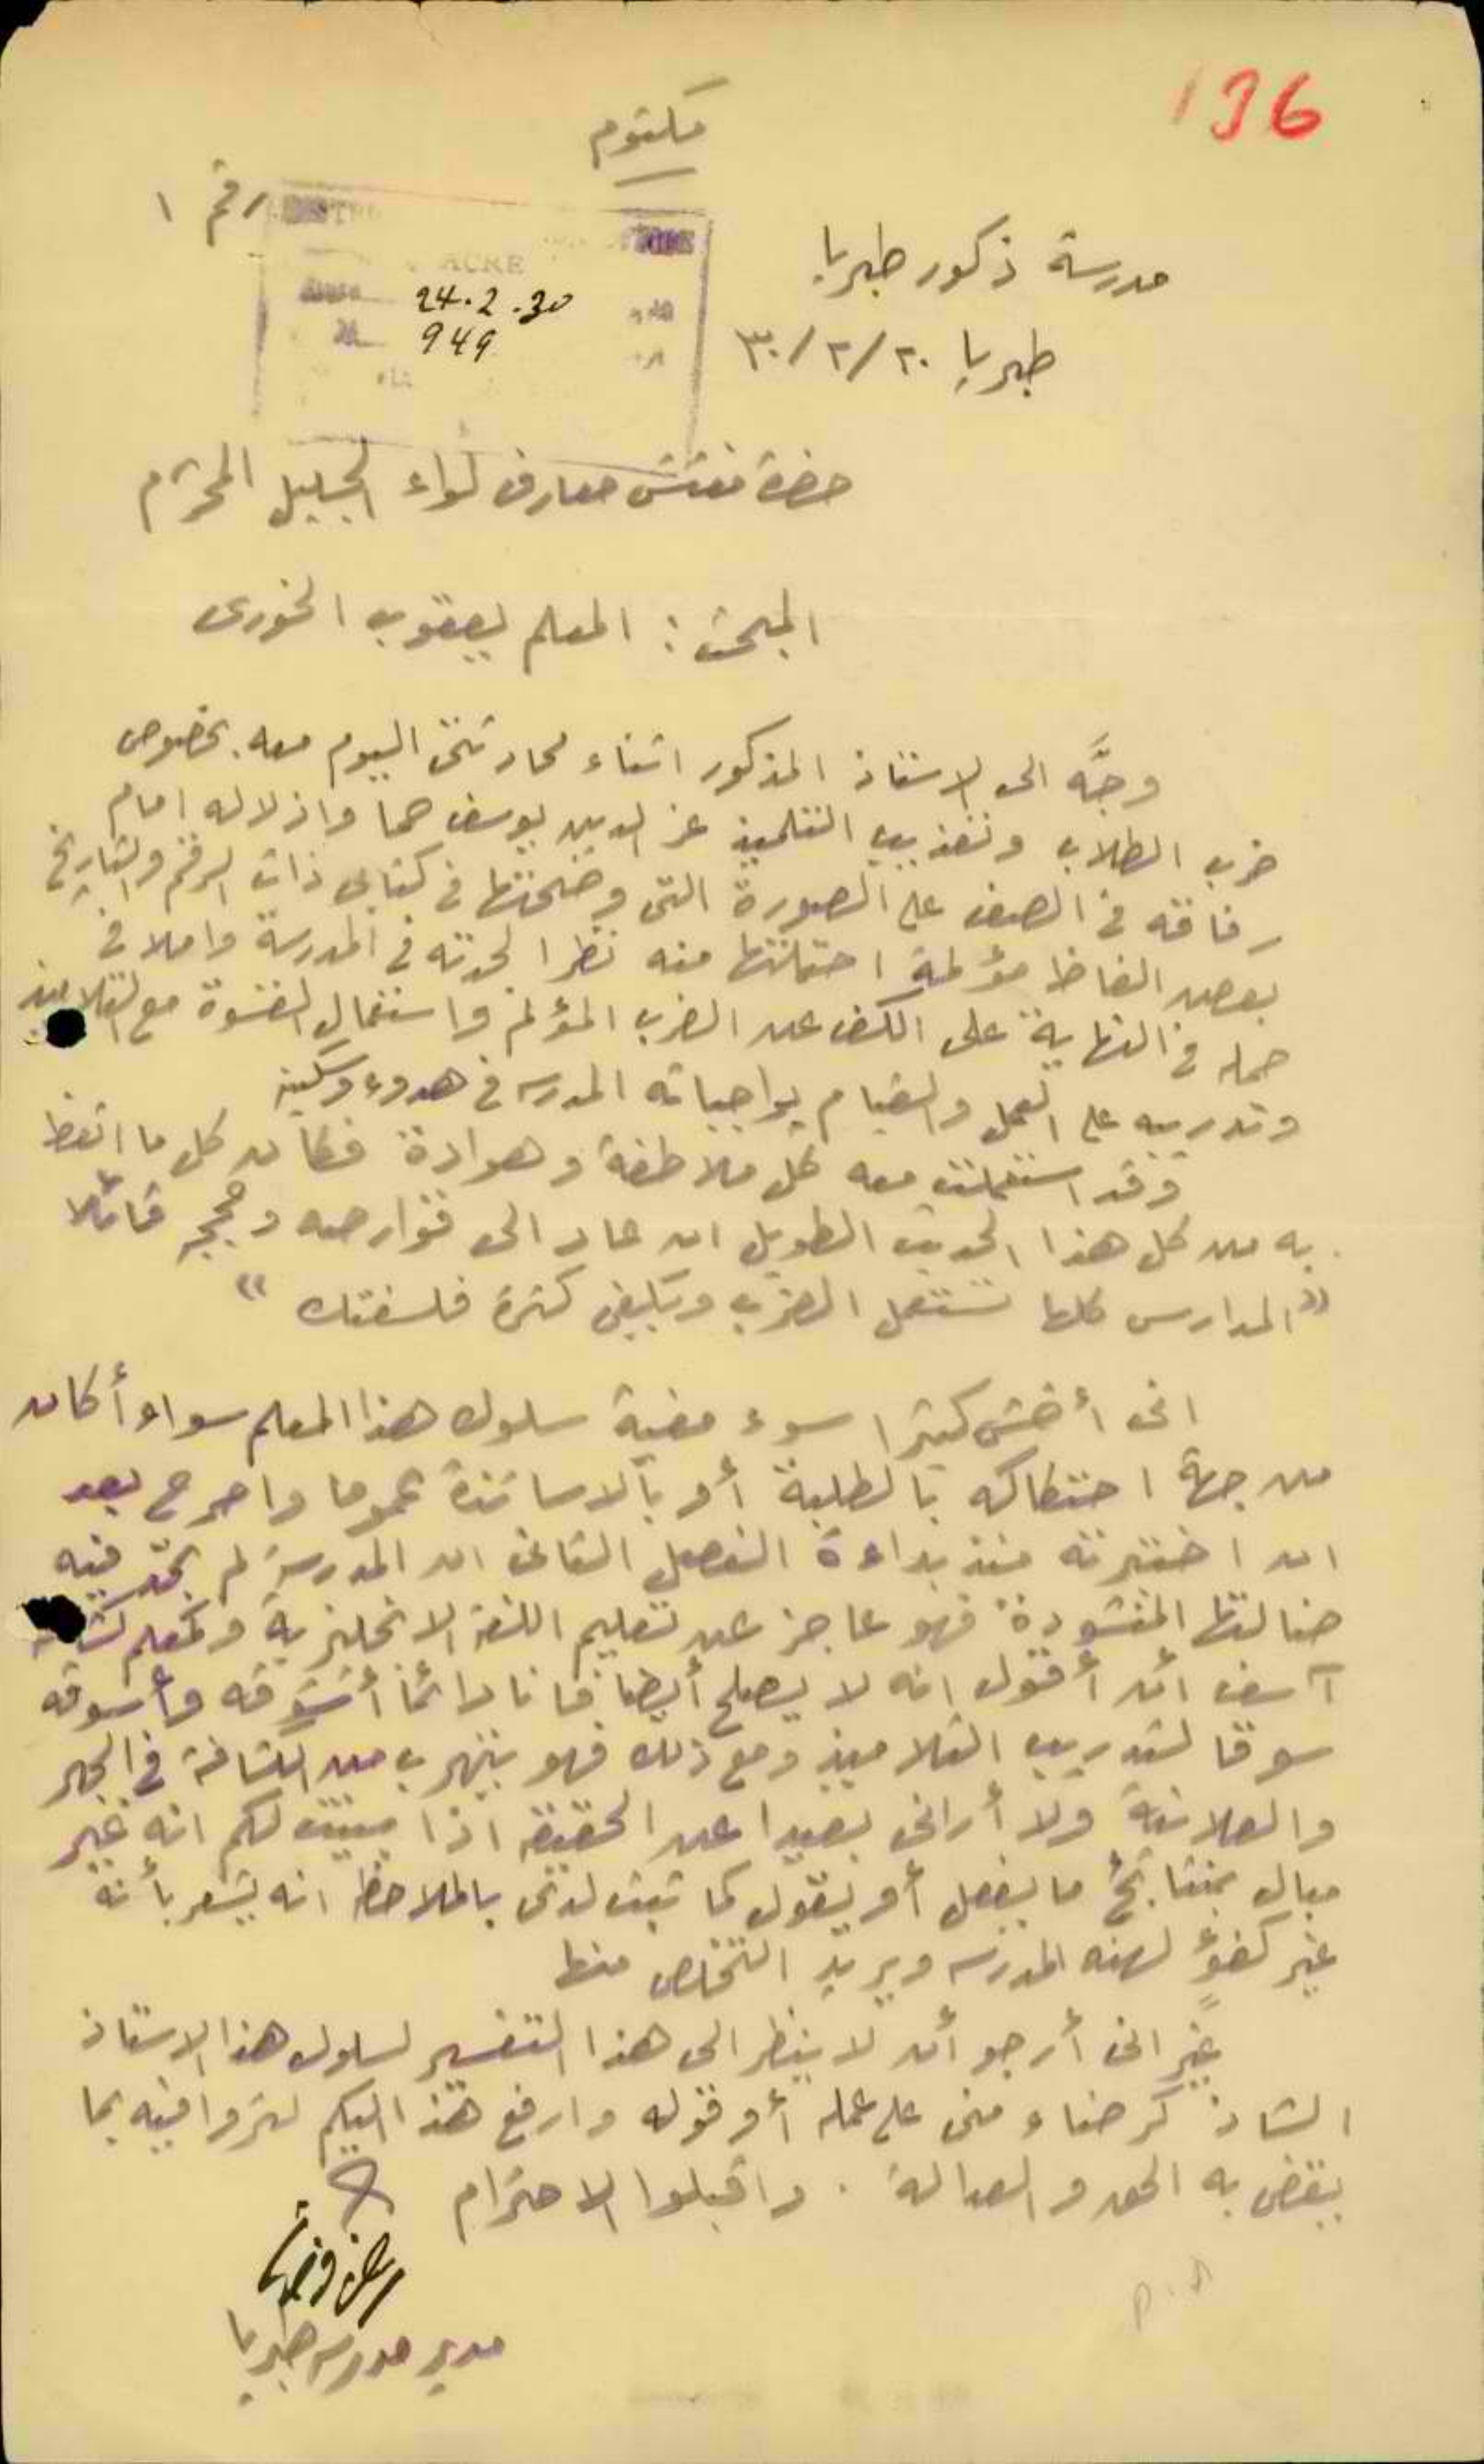 136
مكتوم
رقم ١
ACRE
مدرسة ذكور طبريا
24.2.30
949
طبريا ٢٠/٢/٣٠
حضرة مفتش معارف لواء الجليل المحترم
المبحث: المعلم يعقوب الخوري
وجَّه الي الاستاذ المذكور اثناء محادثتي اليوم معه بخصوص
ضرب الطلاب وتعذيب التلميذ عز الدين يوسف واذلاله امام
رفاقه في الصف على الصورة التي وضحتها في كتابي ذات الرقم والتاريخ
بعض الفاظ مؤلمة احتملتها منه نظرا لحدته في المدرسة واملا في
حمله في النهاية على الكف عن الضرب المؤلم واستعمال القسوة مع التلاميذ
وتدريبه على العمل والقيام بواجباته المدرسه في هدوء وسكينه
وقد استعملت معه كل ملاطفة وهوادة فكان كل ما اتعظ
به من كل هذا الحديث الطويل ان عاد الى قوارصه قائلا
"المدارس كلها تستعمل الضرب ويكفي كثرة فلسفتك"
اني أخشى كثيرا سوء مغبة سلوك هذا المعلم سواء أكان
من جهة احتكاكه بالطلبة أو بالاساتذة عموما واصرح بعد
ان اختبرته منذ بداءة الفصل الثاني ان المدرسة لم تجد فيه
ضالتها المنشودة فهو عاجز عن تعليم اللغة الانجليزية وكمعلم كشافة
آسف أن أقول انه لا يصلح أيضا فانا دائما أشوقه وأسوقه
سوقا لتدريب التلاميذ ومع ذلك فهو يتهرب من الكشافة في الجهر
والعلانية ولا أراني بعيدا عن الحقيقة اذا بينت لكم انه غير
مبال بنتائج ما يفعل أو يقول كما ثبت لدي بالملاحظة انه يشعر بأنه
غير كفؤ لهذه المدرسه ويريد التخلص منها
غير اني أرجو أن لا ينظر الى هذا التفسير لسلوك هذا الاستاذ
الشاذ كرضاء مني على عمله أو قوله وارفع هذا اليكم لتروا فيه بما
يقضي به الحق والعدالة . واقبلوا الاحترام
مدير مدرسة طبريا